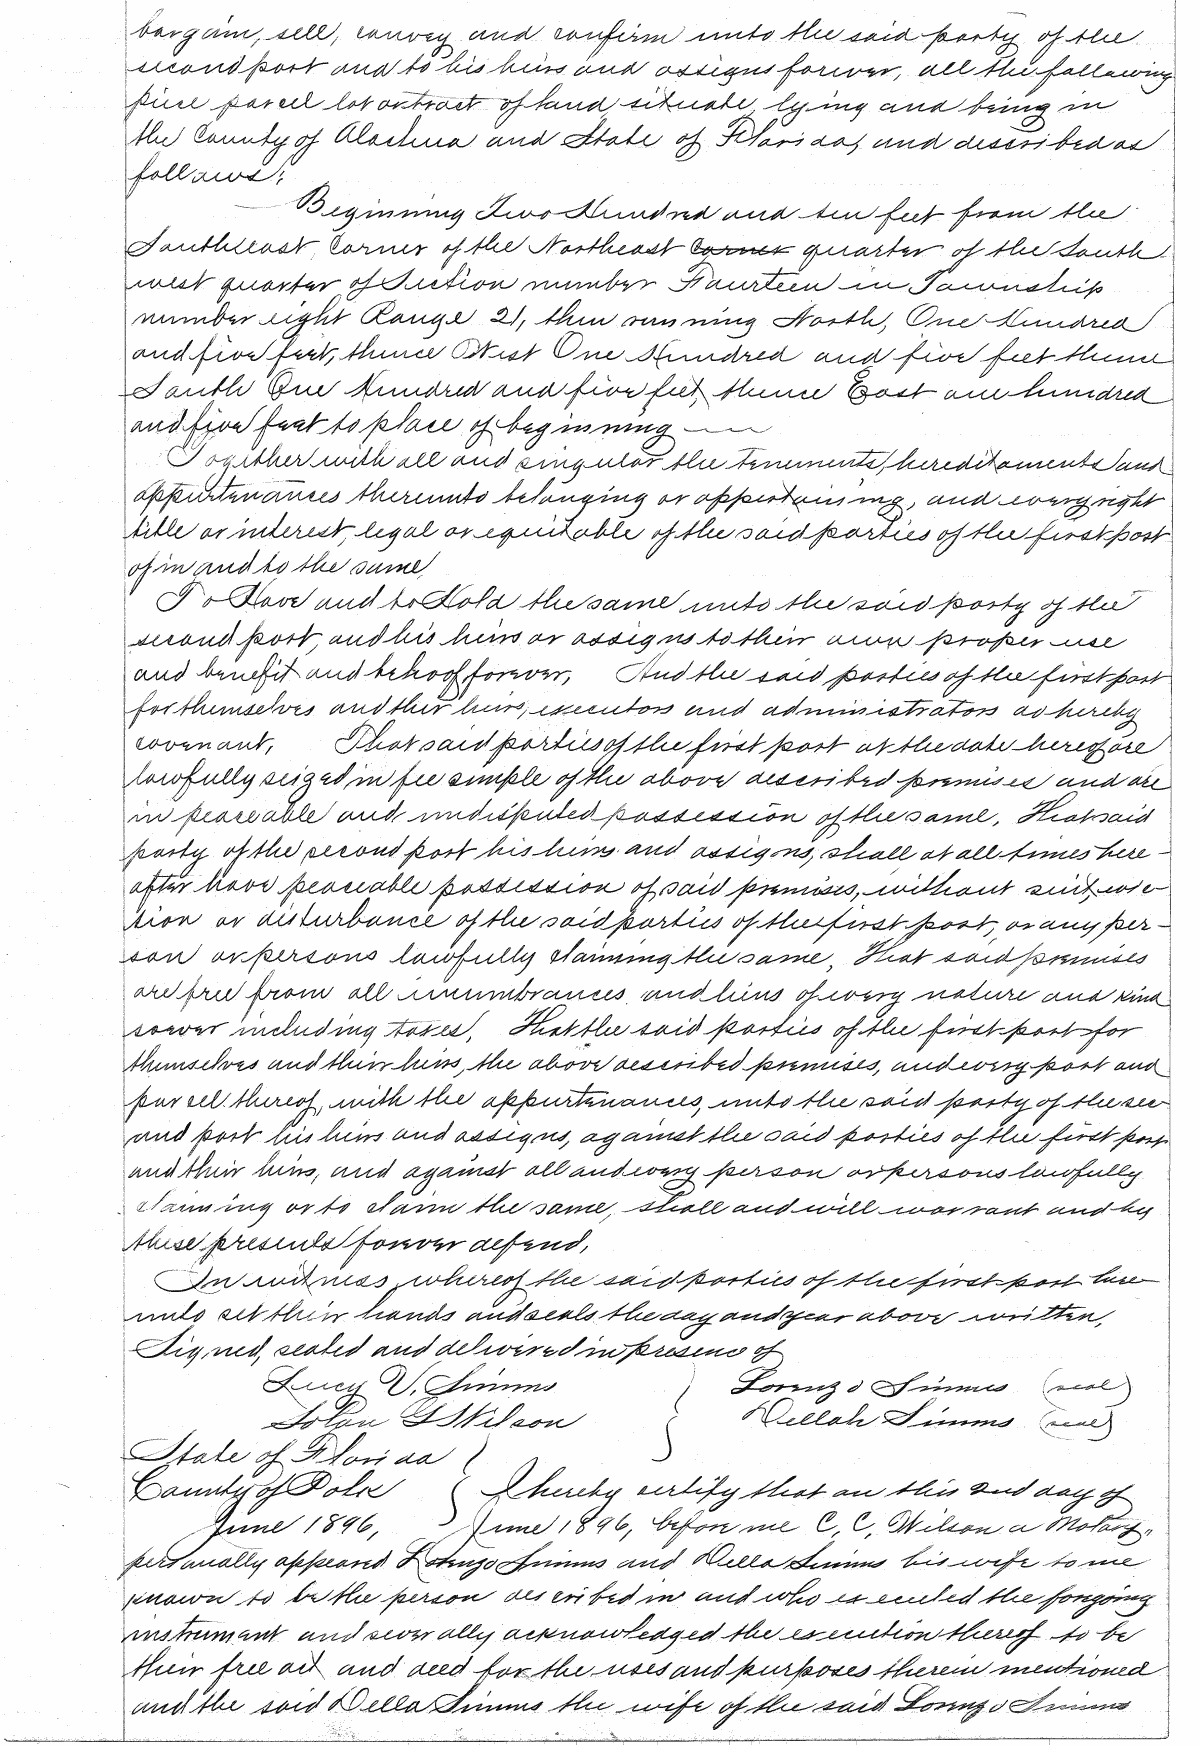 bargain, sell, convey and confirm unto the said party of the
second part and to his heirs and assigns forever, all the following
piece parcel lot or tract of land situate lying and being in
the County of Alachua and State of Florida, and described as
follows:
Beginning Two Hundred and ten feet from the
Southeast Corner of the Northeast Corner quarter of the South
west quarter of Section number Fourteen in Township
number eight Range 21, then running North, One Hundred
and five feet, thence West One Hundred and five feet thence
South One Hundred and five feet, thence East one hundred
and five feet to place of beginning
Together with all and singular the tenements, hereditaments and
appurtenances thereunto belonging or appertaining, and every right
title or interest, legal or equitable of the said parties of the first part
of in and to the same,
To Have and to Hold the same unto the said party of the
second part, and his heirs or assigns to their own proper use
and benefit and behoof forever, And the said parties of the first part
for themselves and their heirs, executors and administrators do hereby
covenant, That said parties of the first part at the date hereof are
lawfully seized in fee simple of the above described premises and are
in peaceable and undisputed possession of the same, That said
party of the second part his heirs and assigns, shall at all times here-
after have peaceable possession of said premises, without suit, evic-
tion or disturbance of the said parties of the first part, or any per-
son or persons lawfully claiming the same, That said premises
are free from all incumbrances and liens of every nature and kind
soever including taxes, That the said parties of the first part for
themselves and their heirs, the above described premises, and every part and
parcel thereof, with the appurtenances, unto the said party of the sec
ond part his heirs and assigns, against the said parties of the first part
and their heirs, and against all and every person or persons lawfully
claiming or to claim the same, shall and will warrant and by
these presents forever defend,
In witness whereof the said parties of the first part here
unto set their hands and seals the day and year above written,
Signed, sealed and delivered in presence of
Lucy V. Simms Lorenzo Simms (seal)
Solan G Wilson Dellah Simms (seal)
State of Florida
County of Polk I hereby certify that on this 2nd day of
June 1896, June 1896, before me C. C. Wilson a Notary,
personally appeared Lorenzo Simms and Della Simms his wife to me
known to be the person described in and who executed the forgoing
instrument and severally acknowledged the execution thereof to be
their free act and deed for the uses and purposes therein mentioned
and the said Della Simms the wife of the said Lorenzo Simms